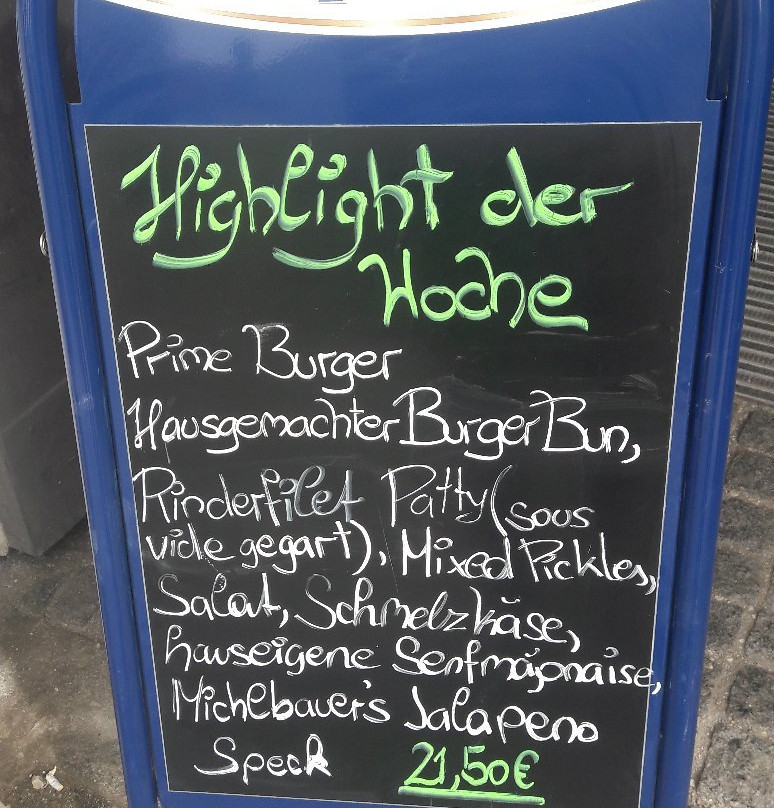 Highlight der
Woche
Prime Burger
Hausgemachter Burger Bun,
Rinderfilet Patty (sous
vide gegart), Mixed Pickles,
Salat, Schmelzkäse,
hauseigene Senfmajonaise,
Michlbauer's Jalapeno
Speck 21,50€